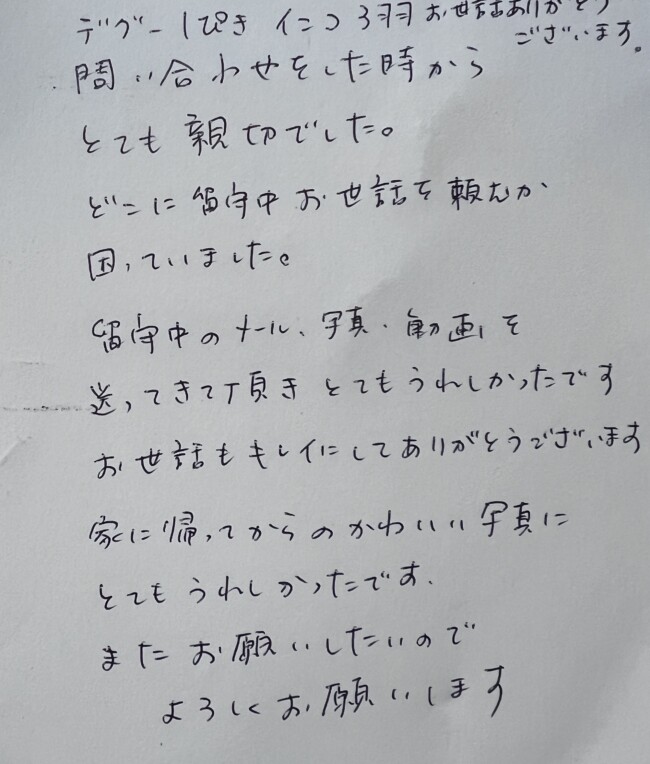 デグー1ぴき インコ3羽 お世話ありがとう
ございます。
問い合わせをした時から
とても親切でした。
どこに留守中お世話を頼むか
困っていました。
留守中のメール、写真・動画を
送ってきて頂き とてもうれしかったです
お世話もキレイにしてありがとうございます
家に帰ってからのかわいい写真に
とてもうれしかったです.
またお願いしたいので
よろしくお願いします